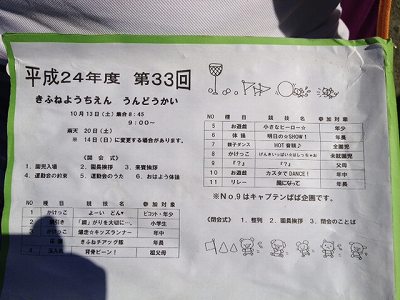 平成24年度 第33回
きふねようちえん うんどうかい
10月13日(土)集合8:45
9:00~
雨天 20日(土)
※ 14日(日)に変更する場合があります。
《開 会 式》
1. 園児入場 2. 園長挨拶 3. 来賓挨拶
4. 運動会の約束 5. 運動会のうた 6. おはよう体操
NO 種 目 競 技 名 参加対象
1 かけっこ よーい どん♥ ピコット・年少
小学生
爆走☆キッズランナー 年中
きふねチアッグ隊 年長
背骨ピーン! 祖父母
NO 種 目 競 技 名 参加対象
5 お遊戯 小さなヒーロー☆ 年少
6 体操 明日の☆SHOW! 年長
7 親子ダンス HOT音頭♪ 全園児
8 かけっこ 未就園児
9 『??』 『??』☆
10 お遊戯 カスタでDANCE! 年中
11 リレー 風になって 年長
※No.9はキャプテンぱぱ企画です。
《閉会式》 1. 整列 2. 園長挨拶 3. 閉会のことば